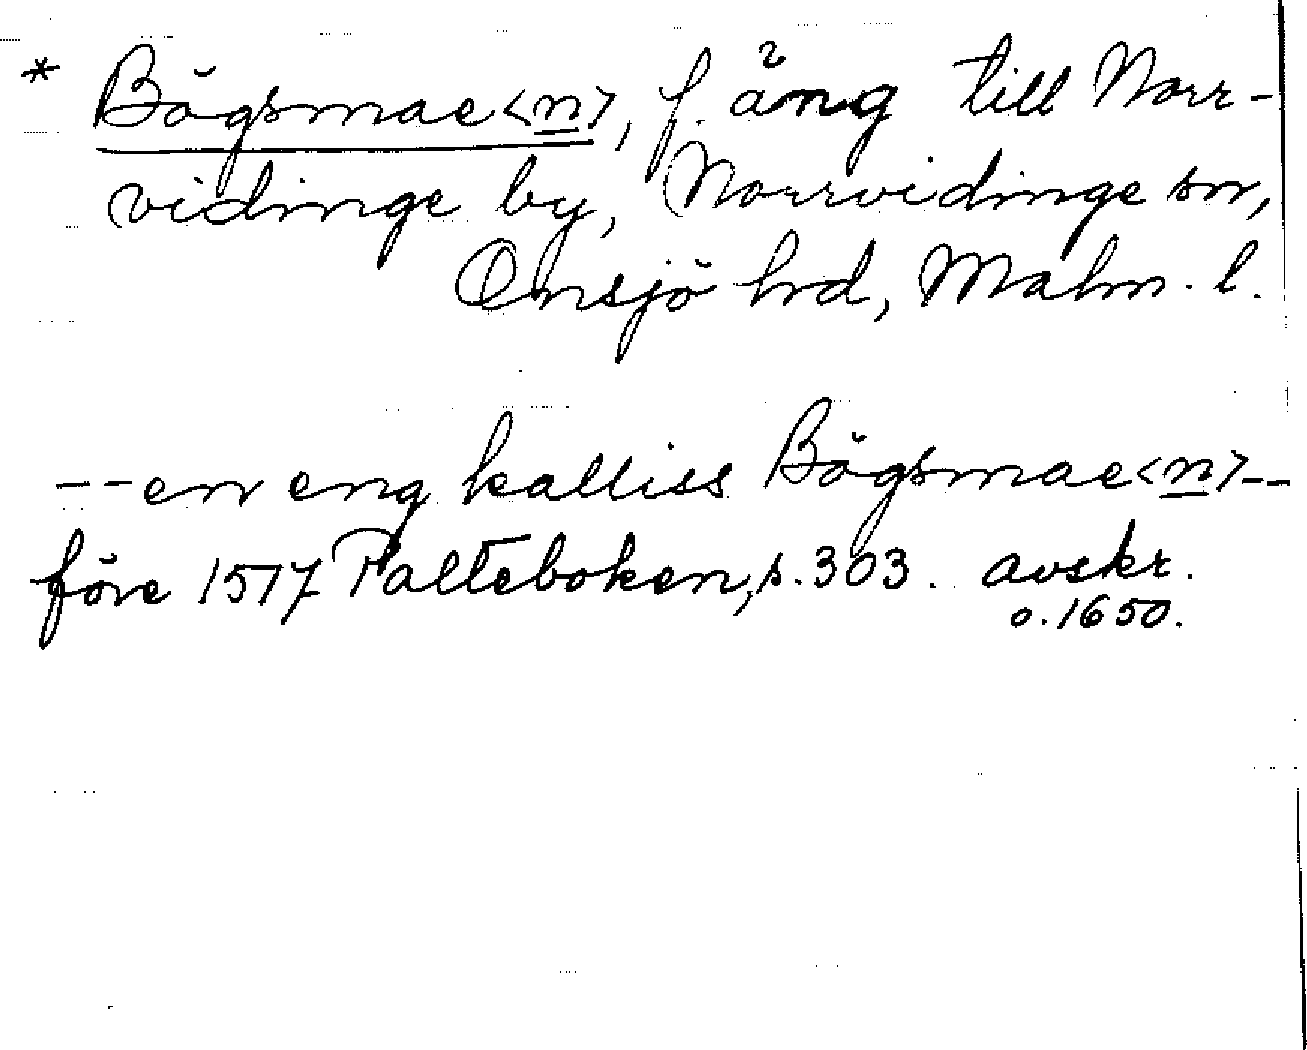 * Bögsmae<n>, f. äng till Norr-
vidinge by, Norrvidinge sn,
Onsjö hrd, Malm. l.
--en eng kalliss Bögsmae<n>--
före 1517 Palteboken, s. 303. avskr.
o. 1650.